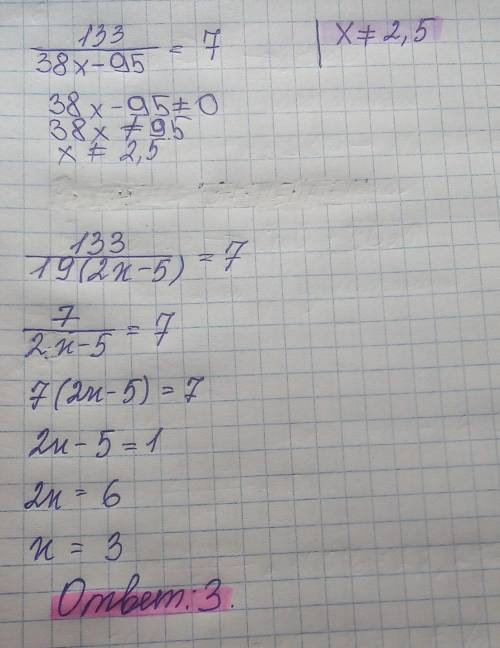 133/(38x-95) = 7 | x ≠ 2,5
38x-95≠0
38x ≠ 95
x ≠ 2,5
133/(19(2x-5)) = 7
7/(2x-5) = 7
7(2x-5) = 7
2x-5 = 1
2x = 6
x = 3
Ответ: 3.